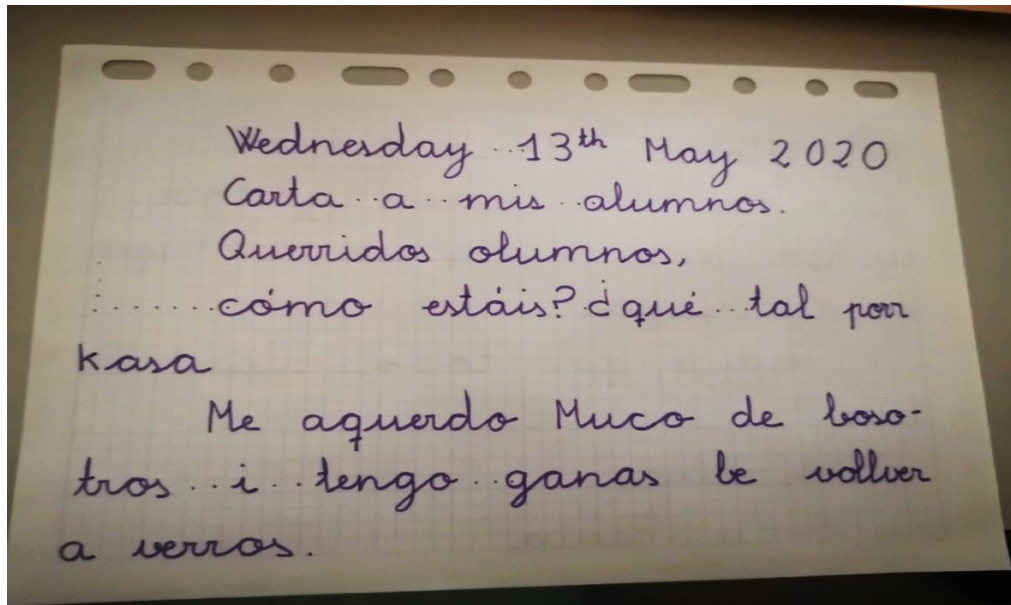 Wednesday 13th May 2020
Carta a mis alumnos.
Querridos alumnos,
cómo estáis? ¿qué tal porr
kasa
Me aquerdo Muco de boso-
tros i tengo ganas be vollver
a verros.